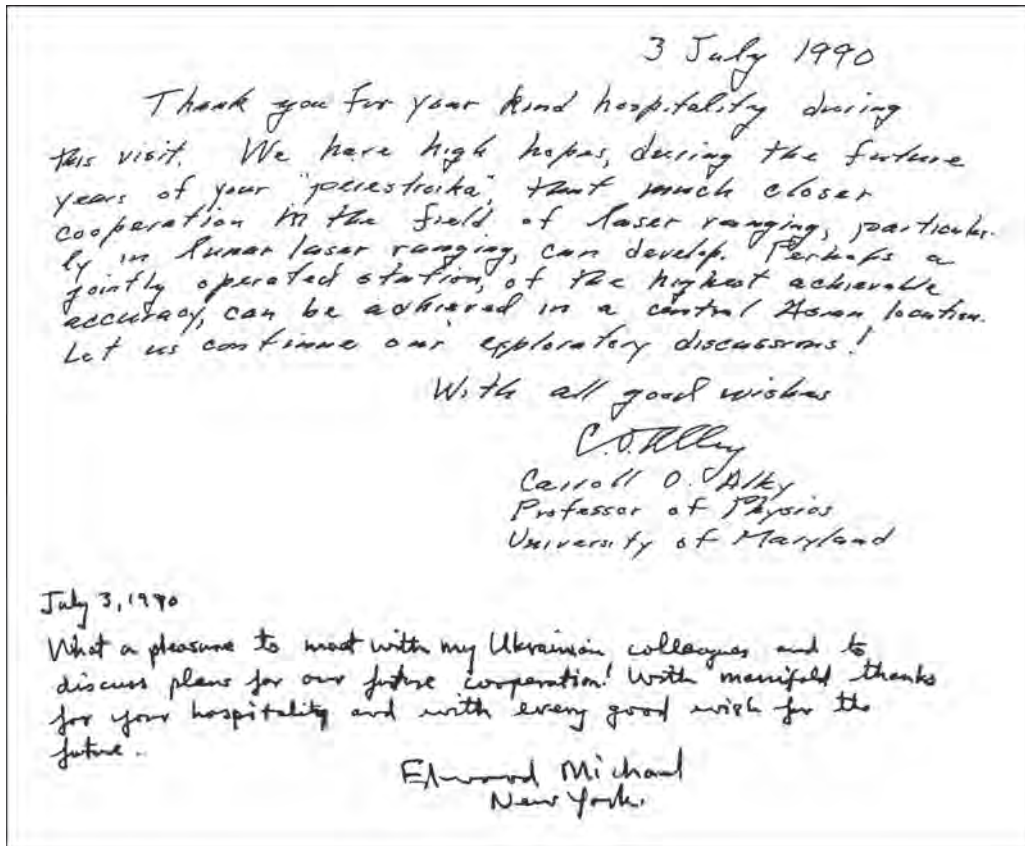 3 July 1990
Thank you for your kind hospitality during
this visit. We have high hopes, during the future
years of your "perestroika", that much closer
cooperation in the field of laser ranging, particular-
ly in lunar laser ranging, can develop. Perhaps a
jointly operated station, of the highest achievable
accuracy, can be achieved in a central Asian location.
Let us continue our exploratory discussions!
With all good wishes
C.O. Alley
Carroll O. Alley
Professor of Physics
University of Maryland
July 3, 1990
What a pleasure to meet with my Ukrainian colleagues and to
discuss plans for our future cooperation! With manifold thanks
for your hospitality and with every good wish for the
future.
Michael
New York.